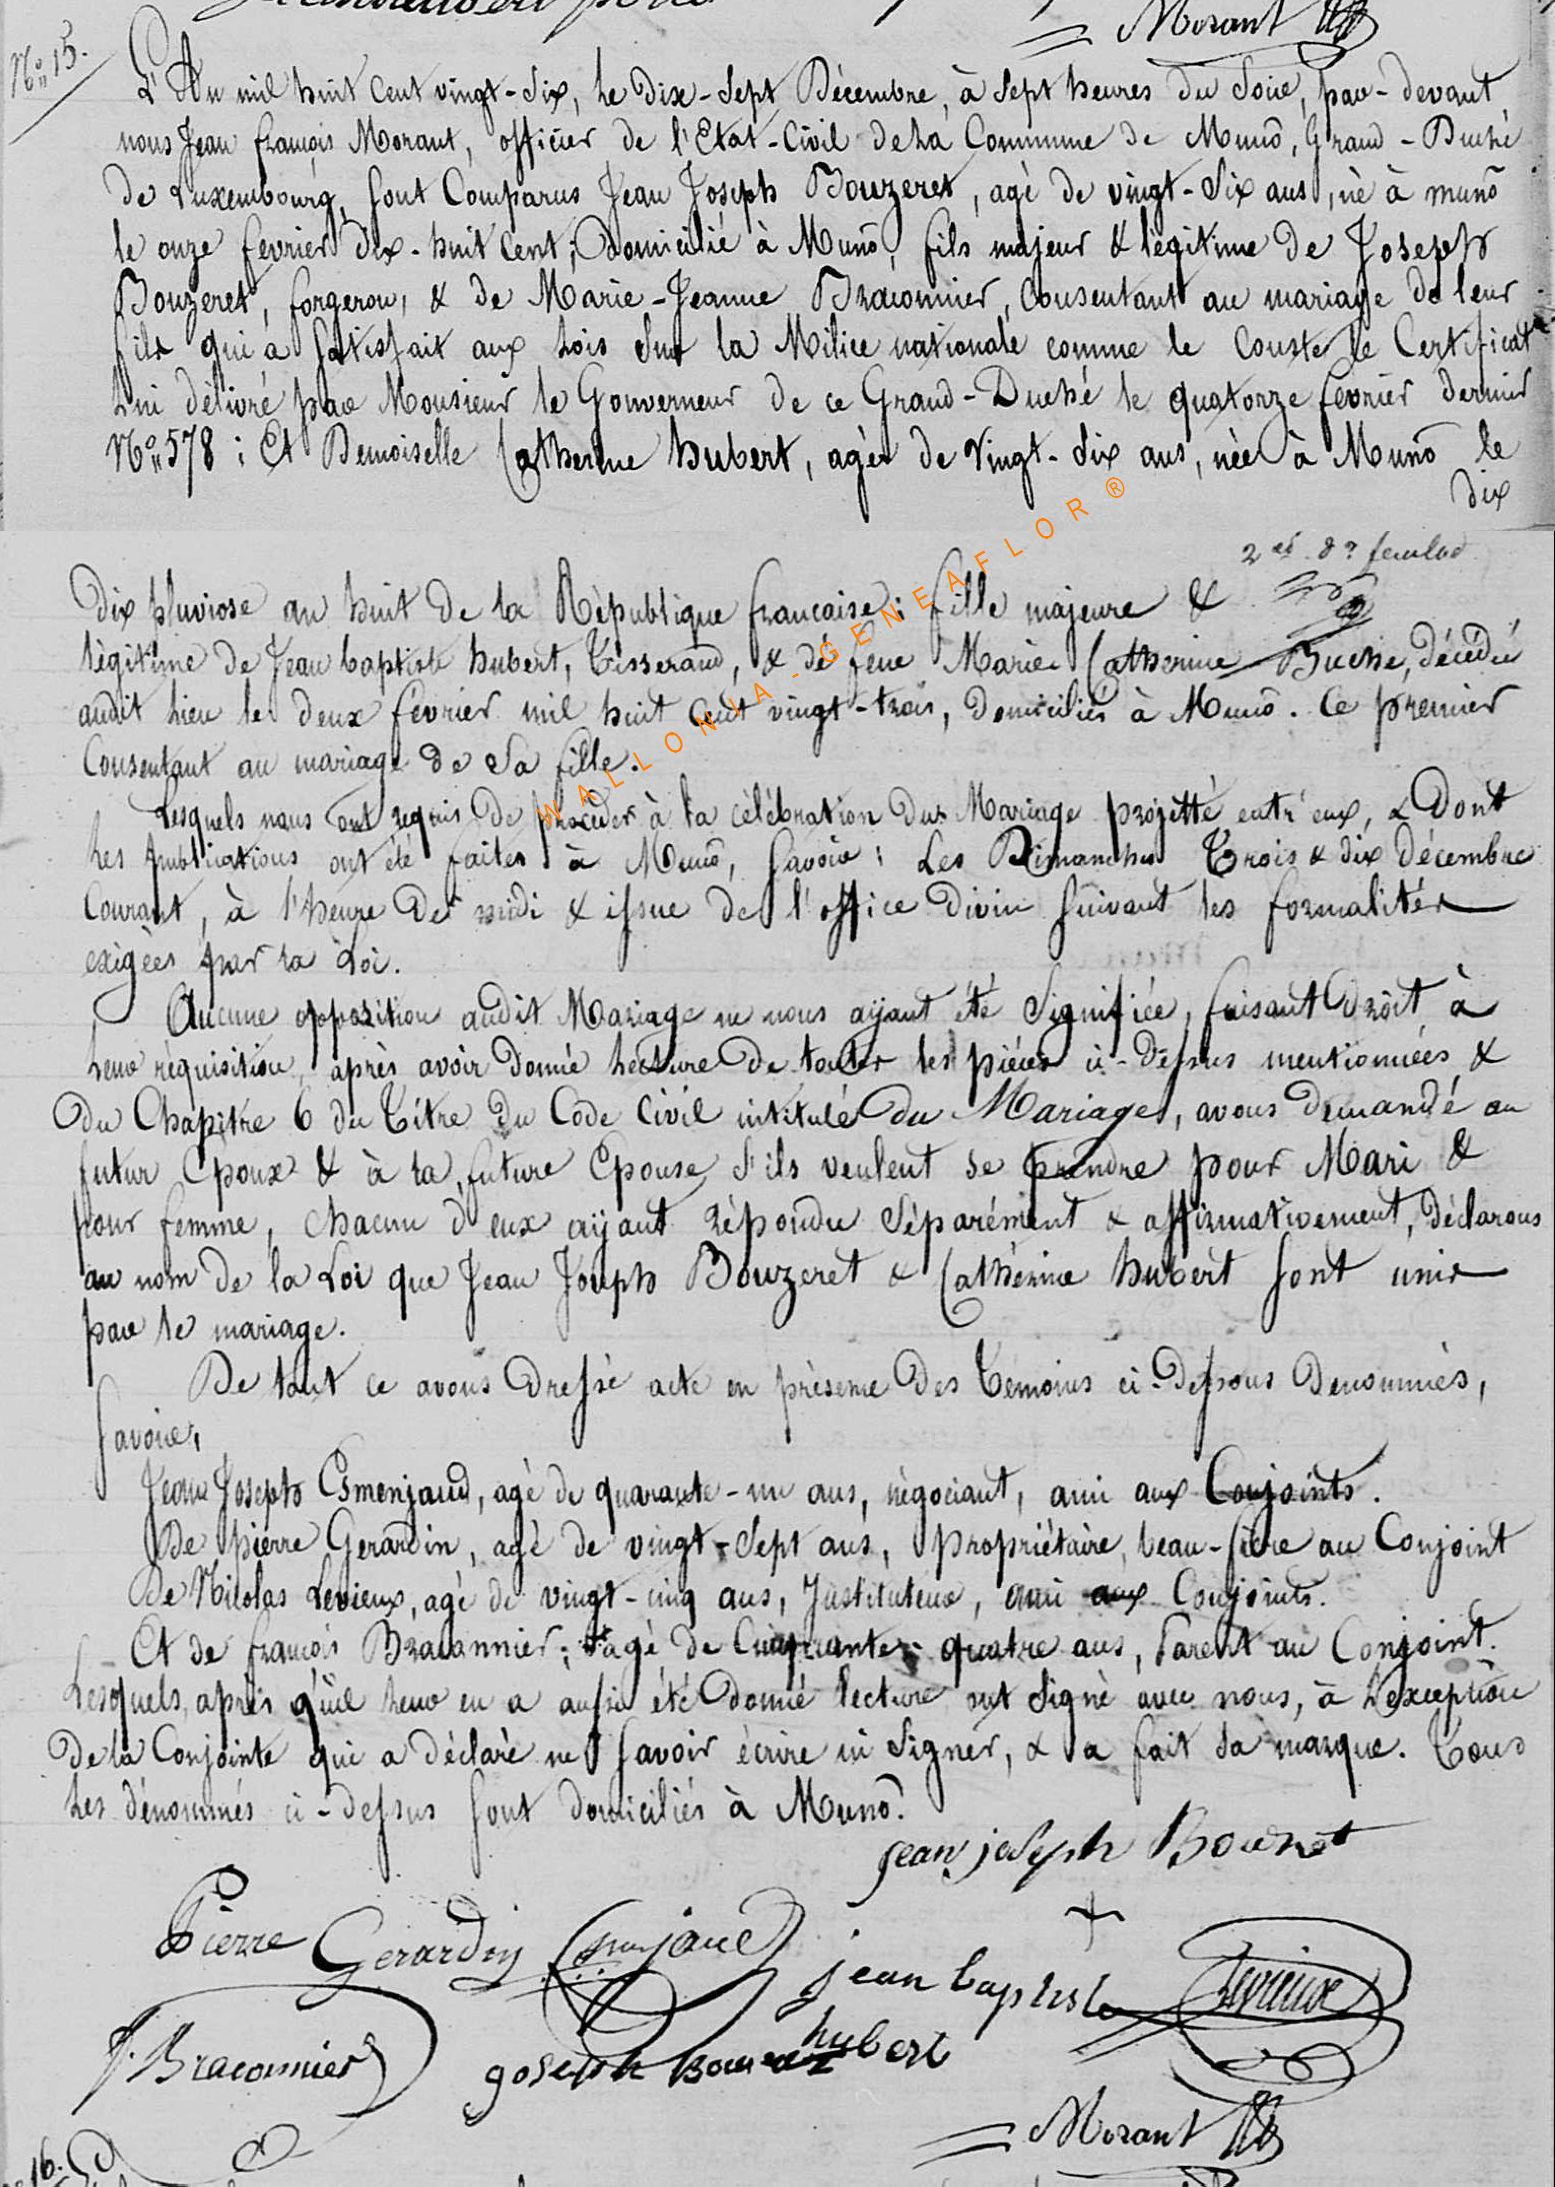 = Morant
N° 15.
L'An mil huit Cent vingt-Six, Le Dix-Sept Décembre, à Sept heures du Soir, par-devant
nous Jean françois Morant, officier de l'Etat-Civil de La Commune de Munō, Grand-Duché
de Luxembourg, sont Comparus Jean Joseph Bouzeret, agé de vingt-Six ans, né à munō
le onze fevrier dix-huit Cent; domicilié à Munō, fils majeur & légitime de Joseph
Bouzeret, forgeron, & de Marie-Jeanne Braconnier, Consentant au mariage de leur
fils qui a Satisfait aux Lois Sur la Milice nationale comme le Conste le Certificat
Lui délivré par Monsieur le Gouverneur de ce Grand-Duché le quatorze fevrier dernier
N° 578; Et Demoiselle Catherine hubert, agée de vingt-Six ans, née à Munō le
dix
2è dr feuillet
Dix pluviose an huit de la République française; fille majeure &
légitime de Jean baptiste hubert, Tisserand, & de feue Marie Catherine Buche, décédée
audit Lieu le deux février mil huit Cent vingt-trois, domiciliés à Munō. Ce premier
Consentant au mariage de Sa fille.
Lesquels nous ont requis de procéder à la célébration du Mariage projetté entr'eux, & Dont
Les publications ont été faites à Munō, Savoir; Les Dimanches Trois & dix Décembre
Courant, à l'heure De midi & issue de l'office Divin Suivant les formalités
exigées par la Loi.
Aucune opposition audit Mariage ne nous ayant été Signifiée, faisant Droit à
Leur réquisition, après avoir Donné Lecture De toutes les pièces ci-Dessus mentionnées &
Du Chapitre 6 du Titre Du Code Civil intitulé Du Mariage, avons Demandé au
futur Epoux & à La future Epouse S'ils veulent se prendre pour Mari &
pour femme, chacun d'eux ayant répondu Séparément & affirmativement, Déclarons
au nom de la Loi que Jean Joseph Bouzeret & Cathérine hubert Sont unis
par le mariage.
De tout ce avons Dressé acte en présence Des Témoins ci-Dessous Denommés,
Savoir,
Jean Joseph Esmenjaud, agé de quarante-un ans, négociant, ami aux Conjoints.
De pierre Gerardin, agé de vingt-Sept ans, propriétaire, beau-frère au Conjoint
De Nicolas Levieux, agé de vingt-cinq ans, Instituteur, ami aux Conjoints.
Et de françois Braconnier; agé de Cinquante-quatre ans, Parent au Conjoint.
Lesquels, après qu'il Leur en a aussi été Donné lecture ont Signé avec nous, à L'exception
De la Conjointe qui a déclaré ne Savoir écrire ni Signer, & a fait Sa marque. Tous
Les dénommés ci-dessus Sont domiciliés à Munō.
jean joseph Bouzret
Pierre Gerardin Esmenjaud
jean baptiste Levieux
hubert
f. Braconnier joseph Bouzeret
= Morant
N° 16.